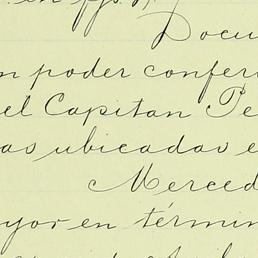 en fjs.
Docu
n poder confer
el Capitan Pe
as ubicadas e
Merced
yor en términ